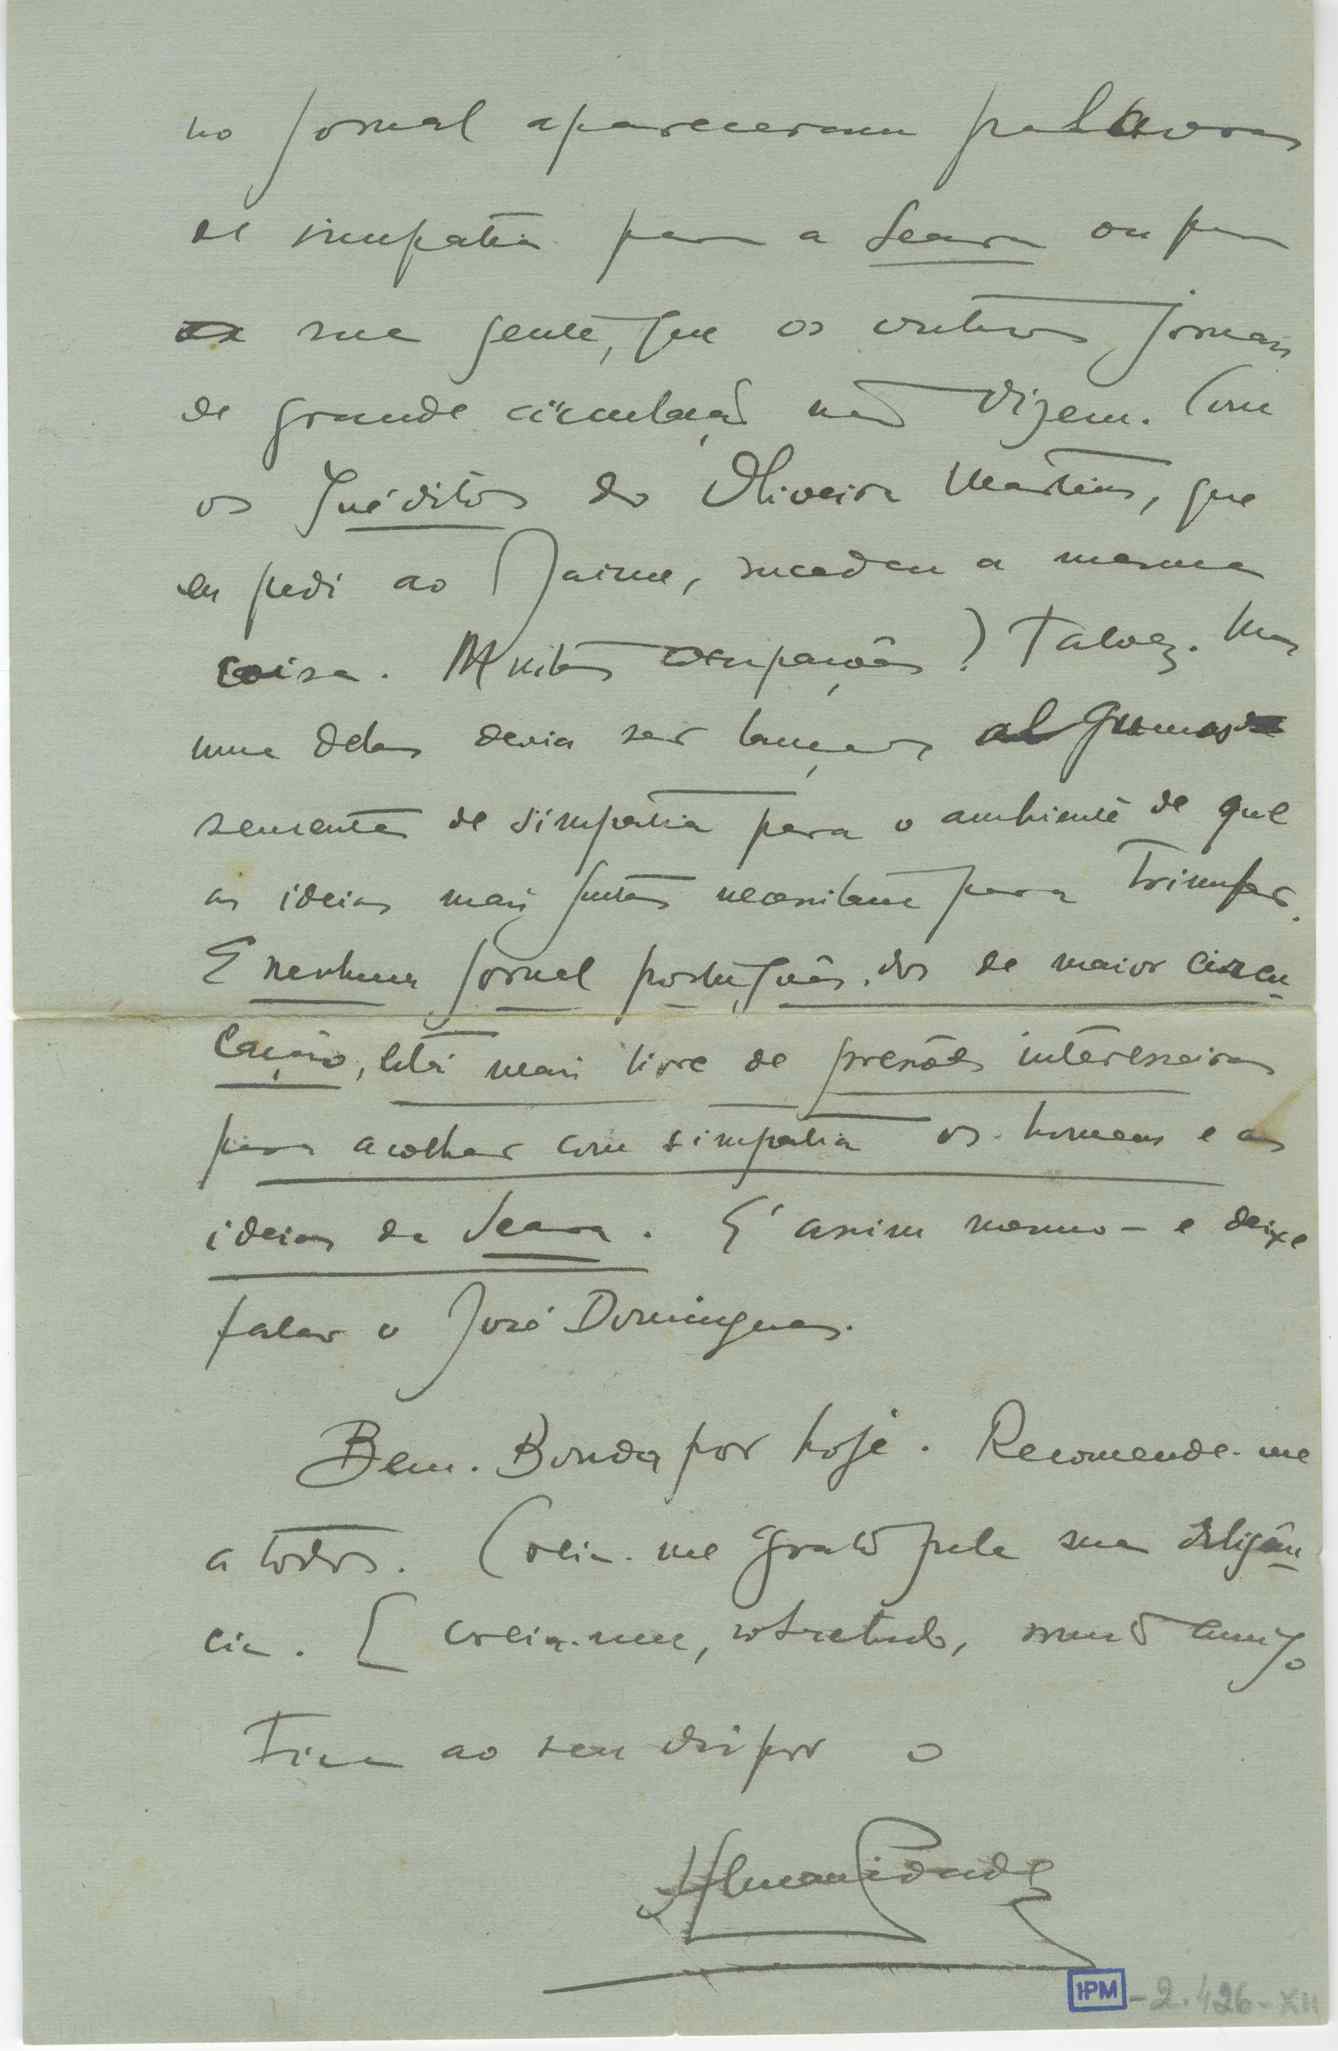 no jornal apareceram palavras
de simpatia para a Seara ou para
sua gente, que os outros jornais
de grande circulação não dizem. Com
os Inéditos do Oliveira Martins, que
eu pedi ao Jaime, sucedeu a mesma
coisa. Muitas ocupações? Talvez. Mas
uma delas devia ser lançar algumas
sementes de simpatia para o ambiente de que
as ideias mais justas necessitam para triunfar.
E nenhum jornal português, dos de maior circu
lação, está mais livre de pressões interesseiras
para acolher com simpatia os homens e as
ideias da Seara. É assim mesmo - e deixe
falar o José Domingues.
Bem. Bonda por hoje. Recomende-me
a todos. Creia-me grato pela sua diligên
cia. E creia-me, sobretudo, muito amigo
Fica ao seu dispor o
Hernani Cidade
IPM - 2.426-XII